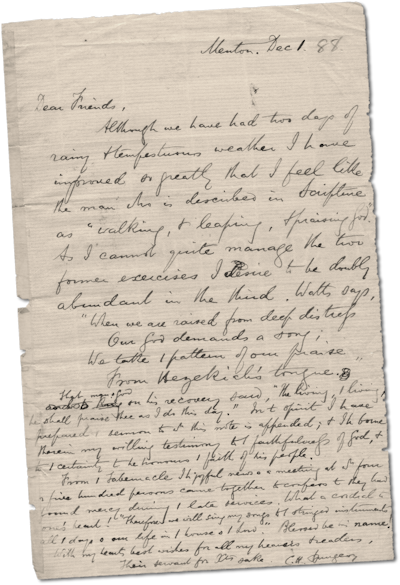 Menton. Dec 1. 88.
Dear Friends,
Although we have had two days of
rainy & tempestuous weather I have
improved so greatly that I feel like
the man who is described in Scripture
as "walking, & leaping, & praising God."
As I cannot quite manage the two
former exercises I desire to be doubly
abundant in the third. Watts says,
"When we are raised from deep distress
Our God demands a song;
We take the pattern of our praise
From Hezekiah's tongue."
on his recovery said, "The living, the living,
he shall praise thee as I do this day." In that spirit I have
prepared the sermon to which this note is appended; & I have borne
therein my willing testimony to the faithfulness of God, &
to the certainty of the honour the faith of his people.
From the Tabernacle I have joyful news of a meeting at which four
or five hundred persons came together to confess that they had
found mercy during the late services. What a cordial to
one's heart! "Therefore we will sing my songs to the stringed instruments
all the days of our life in the house of the Lord." Blessed be his name,
With my heart's best wishes for all my hearers & readers,
Their servant for Xts sake C. H. Spurgeon